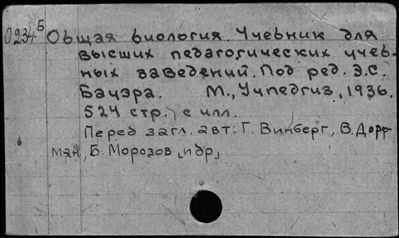 0234 Б Общая биология. Учебник для
высших педагогических учеб-
ных заведений. Под ред. Э.С.
Бауэра. М., Учпедгиз, 1936.
524 стр. с илл.
Перед загл. авт: Г. Винберг, В. Дорф-
ман, Б. Морозов [и др]